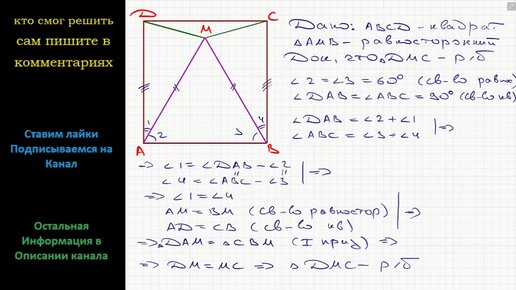 кто смог решить
сам пишите в
комментариях
Ставим лайки
Подписываемся на
Канал
Остальная
Информация в
Описании канала
D
C
M
1
2
3
4
A
B
Дано: ABCD - квадрат
△AMB - равносторонний
Док, что △DMC - р/б
∠2 = ∠3 = 60° (св-во равнос)
∠DAB = ∠ABC = 90° (св-во кв)
∠DAB = ∠2 + ∠1
∠ABC = ∠3 + ∠4 | =>
=> ∠1 = ∠DAB - ∠2
∠4 = ∠ABC - ∠3 | =>
=> ∠1 = ∠4
AM = BM (св-во равностор)
AD = CB (св-во кв) | =>
=> △DAM = △CBM (I приз) =>
=> DM = MC => △DMC - р/б